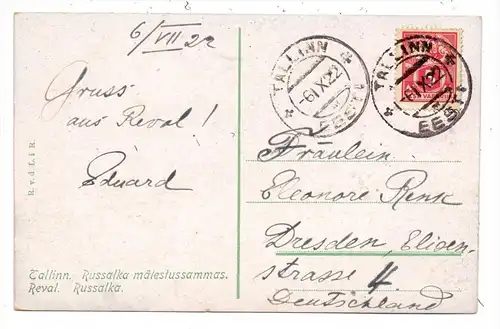 6/VII 22
Gruss
aus Reval!
Eduard
R. v. d. L. i R.
Tallinn. Russalka mälestussammas.
Reval. Russalka.
TALLINN
-6.IX.22
EESTI
TALLINN
-6.IX.22
EESTI
Fräulein
Eleonore Renk
Dresden, Elisen-
strasse 4.
Deutschland